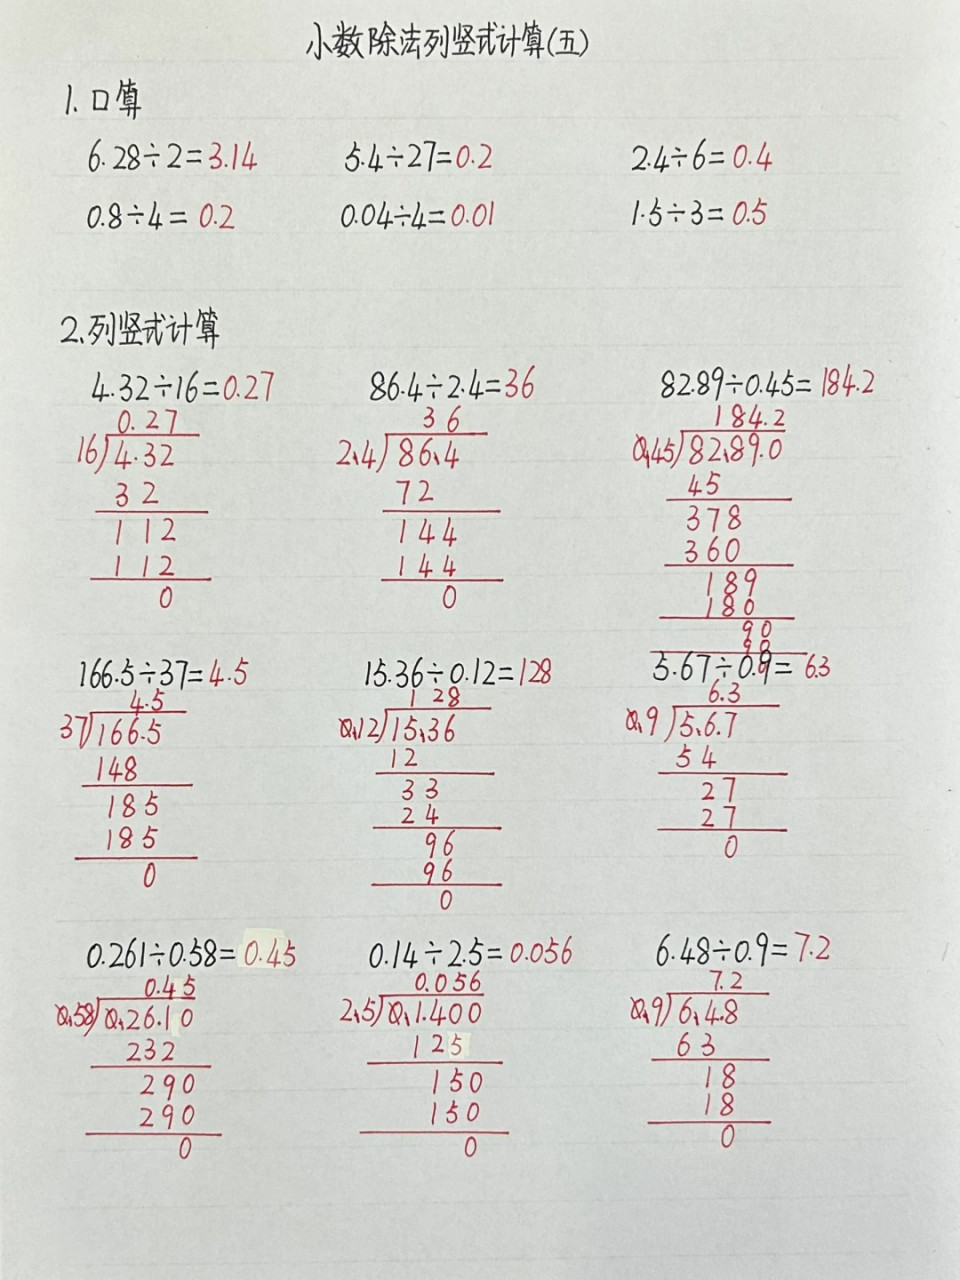 小数除法列竖式计算(五)
1.口算
6.28÷2=3.14 5.4÷27=0.2 2.4÷6=0.4
0.8÷4=0.2 0.04÷4=0.01 1.5÷3=0.5
2.列竖式计算
4.32÷16=0.27 86.4÷2.4=36 82.89÷0.45=184.2
0.27 36 184.2
16)4.32 2.4)86.4 0.45)82.89.0
32 72 45
112 144 378
112 144 360
0 0 189
180
90
90
0
166.5÷37=4.5 15.36÷0.12=128 5.67÷0.9=6.3
4.5 128 6.3
37)166.5 0.12)15.36 0.9)5.6.7
148 12 54
185 33 27
185 24 27
0 96 0
96
0
0.261÷0.58=0.45 0.14÷2.5=0.056 6.48÷0.9=7.2
0.45 0.056 7.2
0.58)0.26.10 2.5)0.1.400 0.9)6.4.8
232 125 63
290 150 18
290 150 18
0 0 0